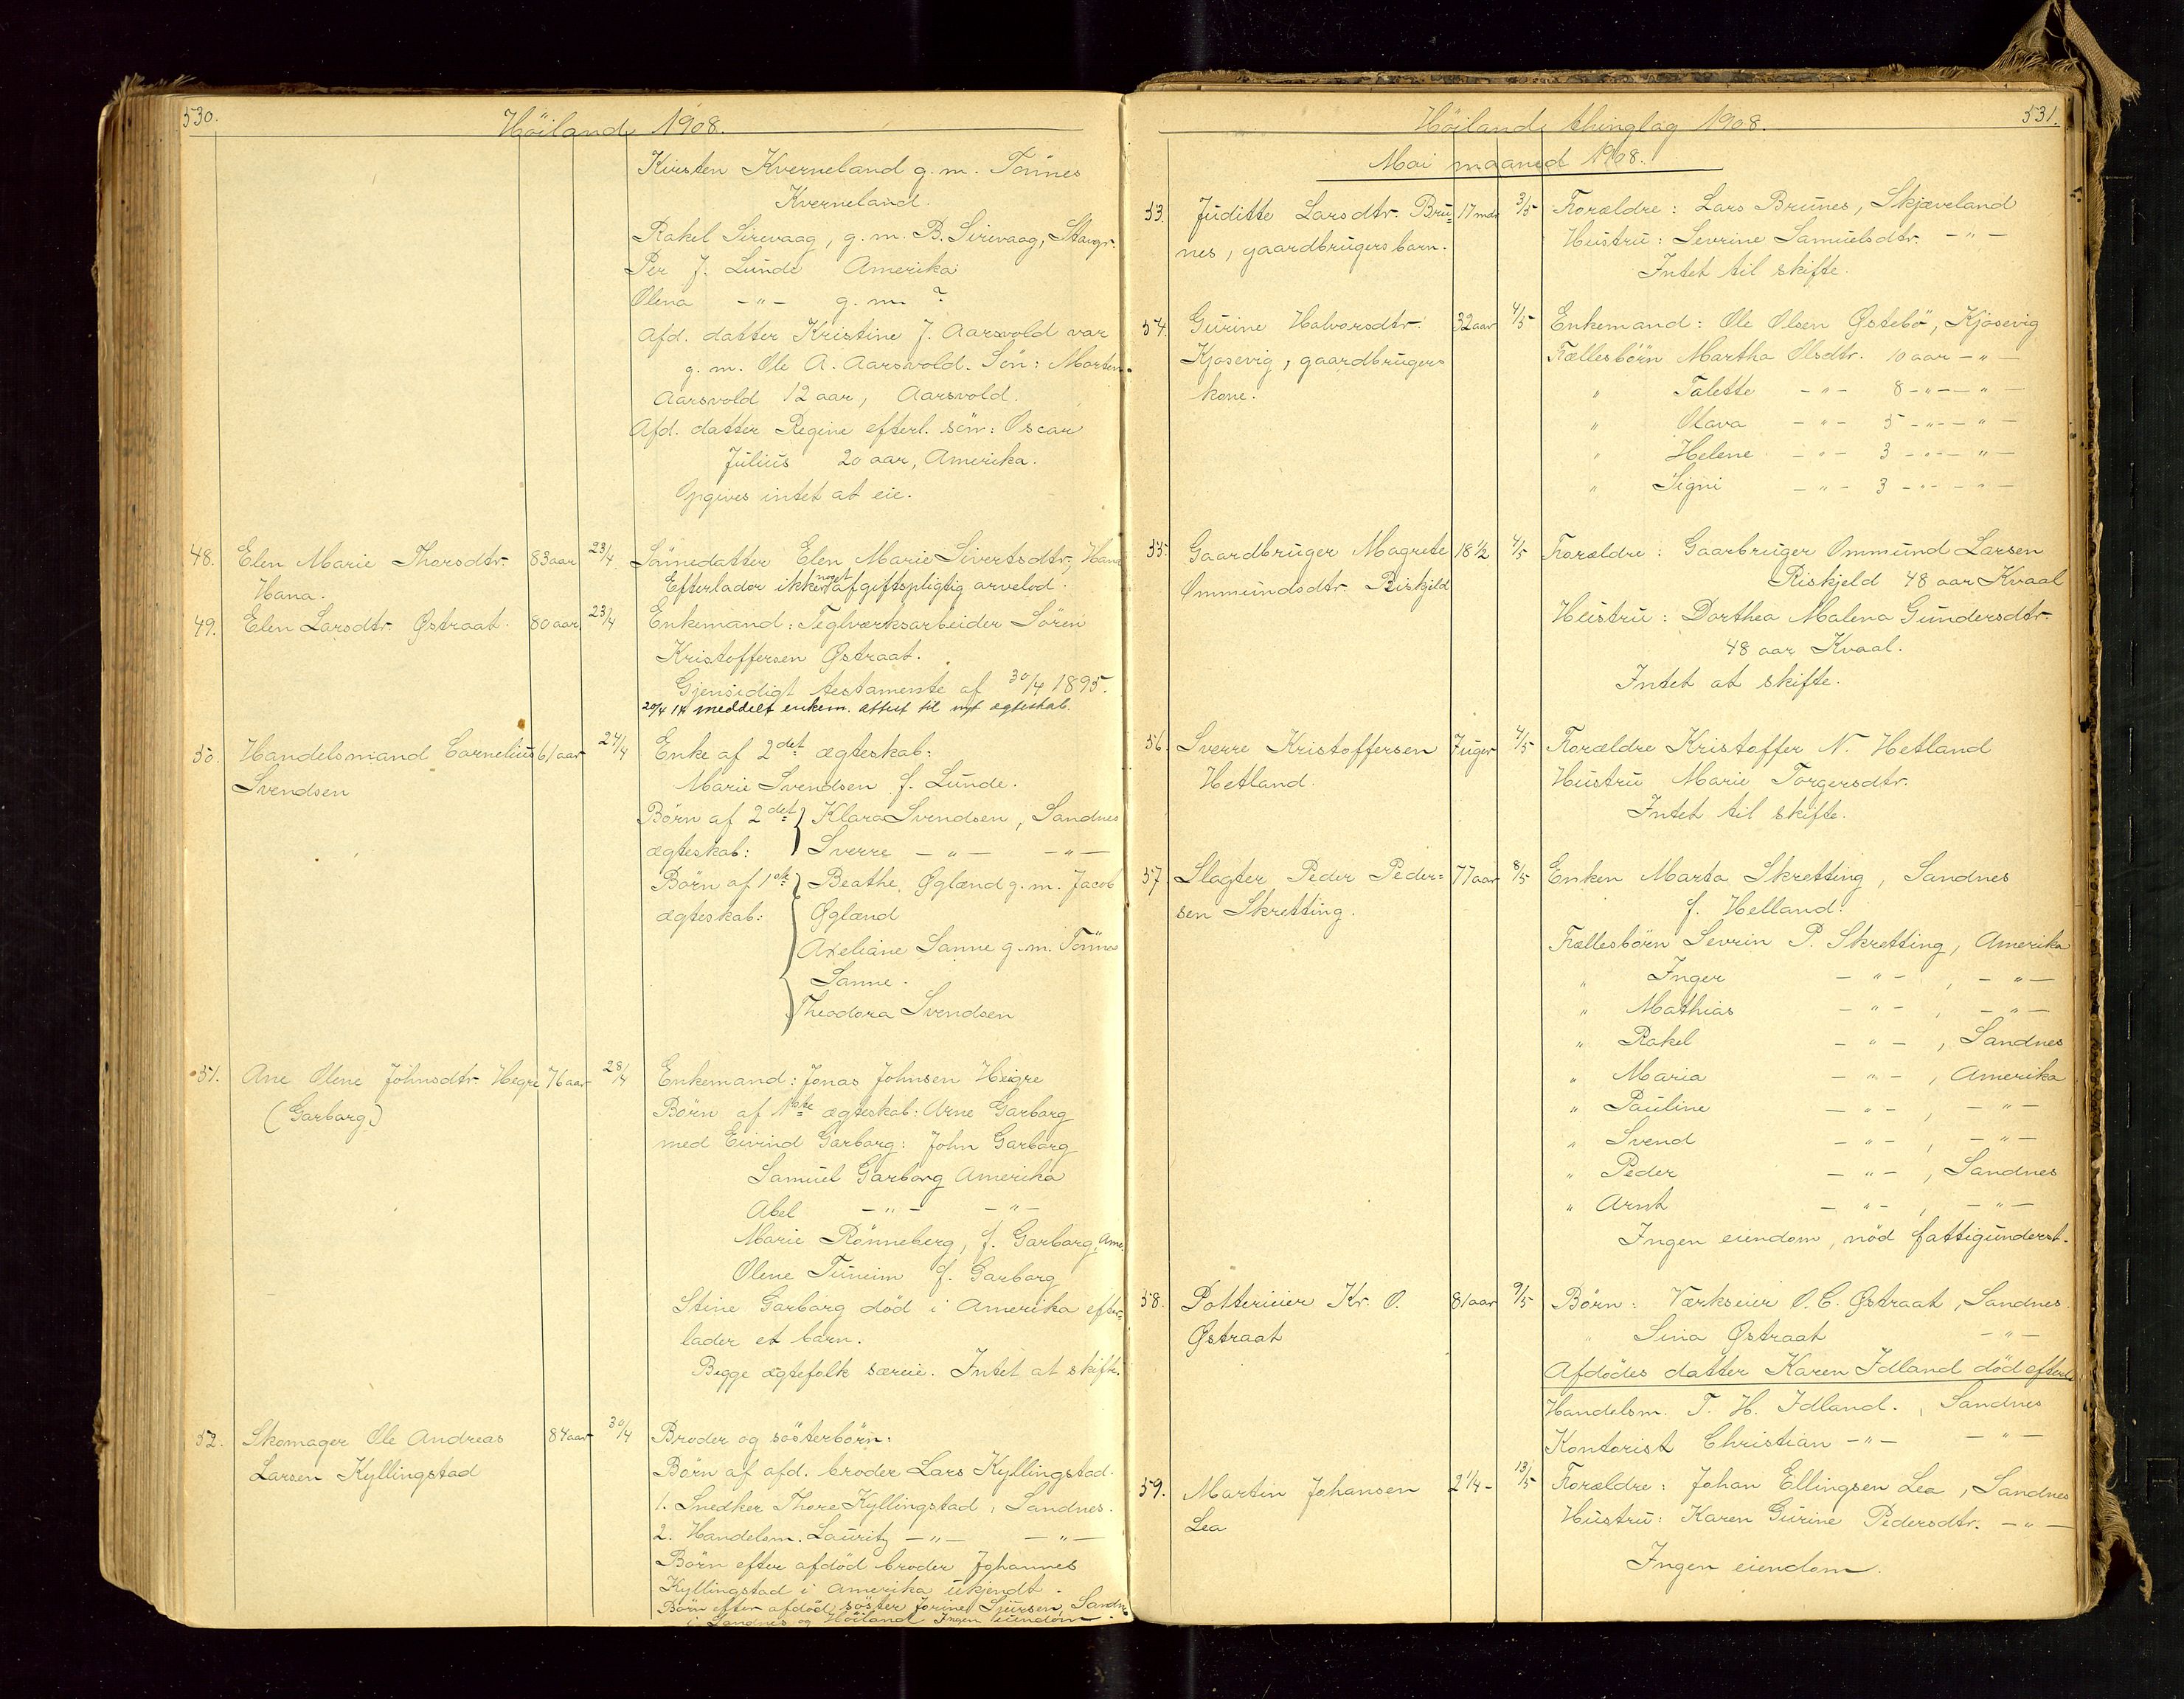 530.
Höiland 1908.
Kirsten Kverneland g. m. Tönnes
Kverneland.
Rakel Sirevaag, g. m. B. Sirevaag, Stavgr.
Per J. Lunde Amerika
Olena -"- g. m. ?
Afd. datter Kristine J. Aarsvold var
g. m. Ole A. Aarsvold. Sön: Morten
Aarsvold 12 aar, Aarsvold.
Afd. datter Regine efterl. sön: Oscar
Julius 20 aar, Amerika.
Opgives intet at eie.
48. Elen Marie Thorsdtr. 83 aar 23/4 Sönnedatter Elen Marie Sivertsdtr, Hana
Hana. Efterlader ikke noget afgiftspligtig arvelod.
49. Elen Larsdtr. Østraat. 80 aar 23/4 Enkemand: Teglværksarbeider Sören
Kristoffersen Østraat.
Gjensidigt testamente af 30/4 1895.
20/4 14 meddelt enkem. attest til nyt ægteskab.
50. Handelsmand Cornelius 61 aar 24/4 Enke af 2det ægteskab:
Svendsen Marie Svendsen f. Lunde.
Börn af 2det Klara Svendsen, Sandnes
ægteskab: Sverre -"- -"-
Börn af 1ste Beathe Øglænd g. m. Jacob
ægteskab: Øglænd
Axeliane Sanne g. m. Tönnes
Sanne.
Theodora Svendsen
51. Ane Olene Johnsdtr. Hegre 76 aar 28/4 Enkemand: Jonas Johnsen Heigre
(Garborg) Börn af 1ste ægteskab: Arne Garborg
med Eivind Garborg: John Garborg
Samuel Garborg Amerika
Abel -"- -"-
Marie Rönneberg, f. Garborg, Ame.
Olene Tuneim f. Garborg
Stine Garborg död i Amerika efter-
lader et barn.
Begge ægtefolk særeie. Intet at skifte.
52. Skomager Ole Andreas 84 aar 30/4 Broder og sösterbörn:
Larsen Kyllingstad Börn af afd. broder Lars Kyllingstad.
1. Snedker Thore Kyllingstad, Sandnes.
2. Handelsm. Lauritz -"- -"-
Börn efter afdöd broder Johannes
Kyllingstad i Amerika ukjendt.
Börn efter afdöd söster Jorine Sjursen, Sandn
i Sandnes og Höiland Ingen eiendom.
531.
Höiland thinglag 1908.
Mai maaned 1908.
53. Juditte Larsdtr. Bru= 17 mdr 3/5 Forældre: Lars Brunes, Skjæveland
nes, gaardbrugers barn. Hustru: Sevrine Samuelsdtr. -"-
Intet til skifte.
54. Gurine Halvorsdtr. 32 aar 4/5 Enkemand: Ole Olsen Østebö, Kjosevig
Kjosevig, gaardbrugers Fællesbörn Martha Olsdtr. 10 aar -"-
kone. " Talette -"- 8 -"- -"-
" Olava -"- 5 -"- -"-
" Helene -"- 3 -"- -"-
" Signi -"- 3 -"- -"-
55. Gaardbruger Magrete 18 1/2 4/5 Forældre: Gaarbruger Ommund Larsen
Ommundsdtr. Riskjeld Riskjeld 48 aar Kvaal
Hustru: Dorthea Malena Gundersdtr.
48 aar Kvaal.
Intet at skifte.
56. Sverre Kristoffersen 7 uger 4/5 Forældre Kristoffer N. Hetland
Hetland. Hustru Marie Torgersdtr.
Intet til skifte.
57. Slagter Peder Peder= 77 aar 8/5 Enken Marta Skretting, Sandnes
sen Skretting. f. Helland.
Fællesbörn Sevrin P. Skretting, Amerika
" Inger -"- , -"-
" Mathias -"- , -"-
" Rakel -"- , Sandnes
" Maria -"- , Amerika
" Pauline -"- , -"-
" Svend -"- , -"-
" Peder -"- , Sandnes
" Arnt -"- , -"-
Ingen eiendom, nöd fattigunderst.
58. Potterieier Kr. O. 81 aar 9/5 Börn: Værkseier O. C. Østraat, Sandnes.
Østraat " Sina Østraat -"-
Afdödes datter Karen Idland död efterl.
Handelsm. T. H. Idland. , Sandnes
Kontorist Christian -"- -"-
59. Martin Johansen 2 1/4 - 13/5 Forældre: Johan Ellingsen Lea, Sandnes
Lea Hustru: Karen Gurine Pedersdtr. -"-
Ingen eiendom.